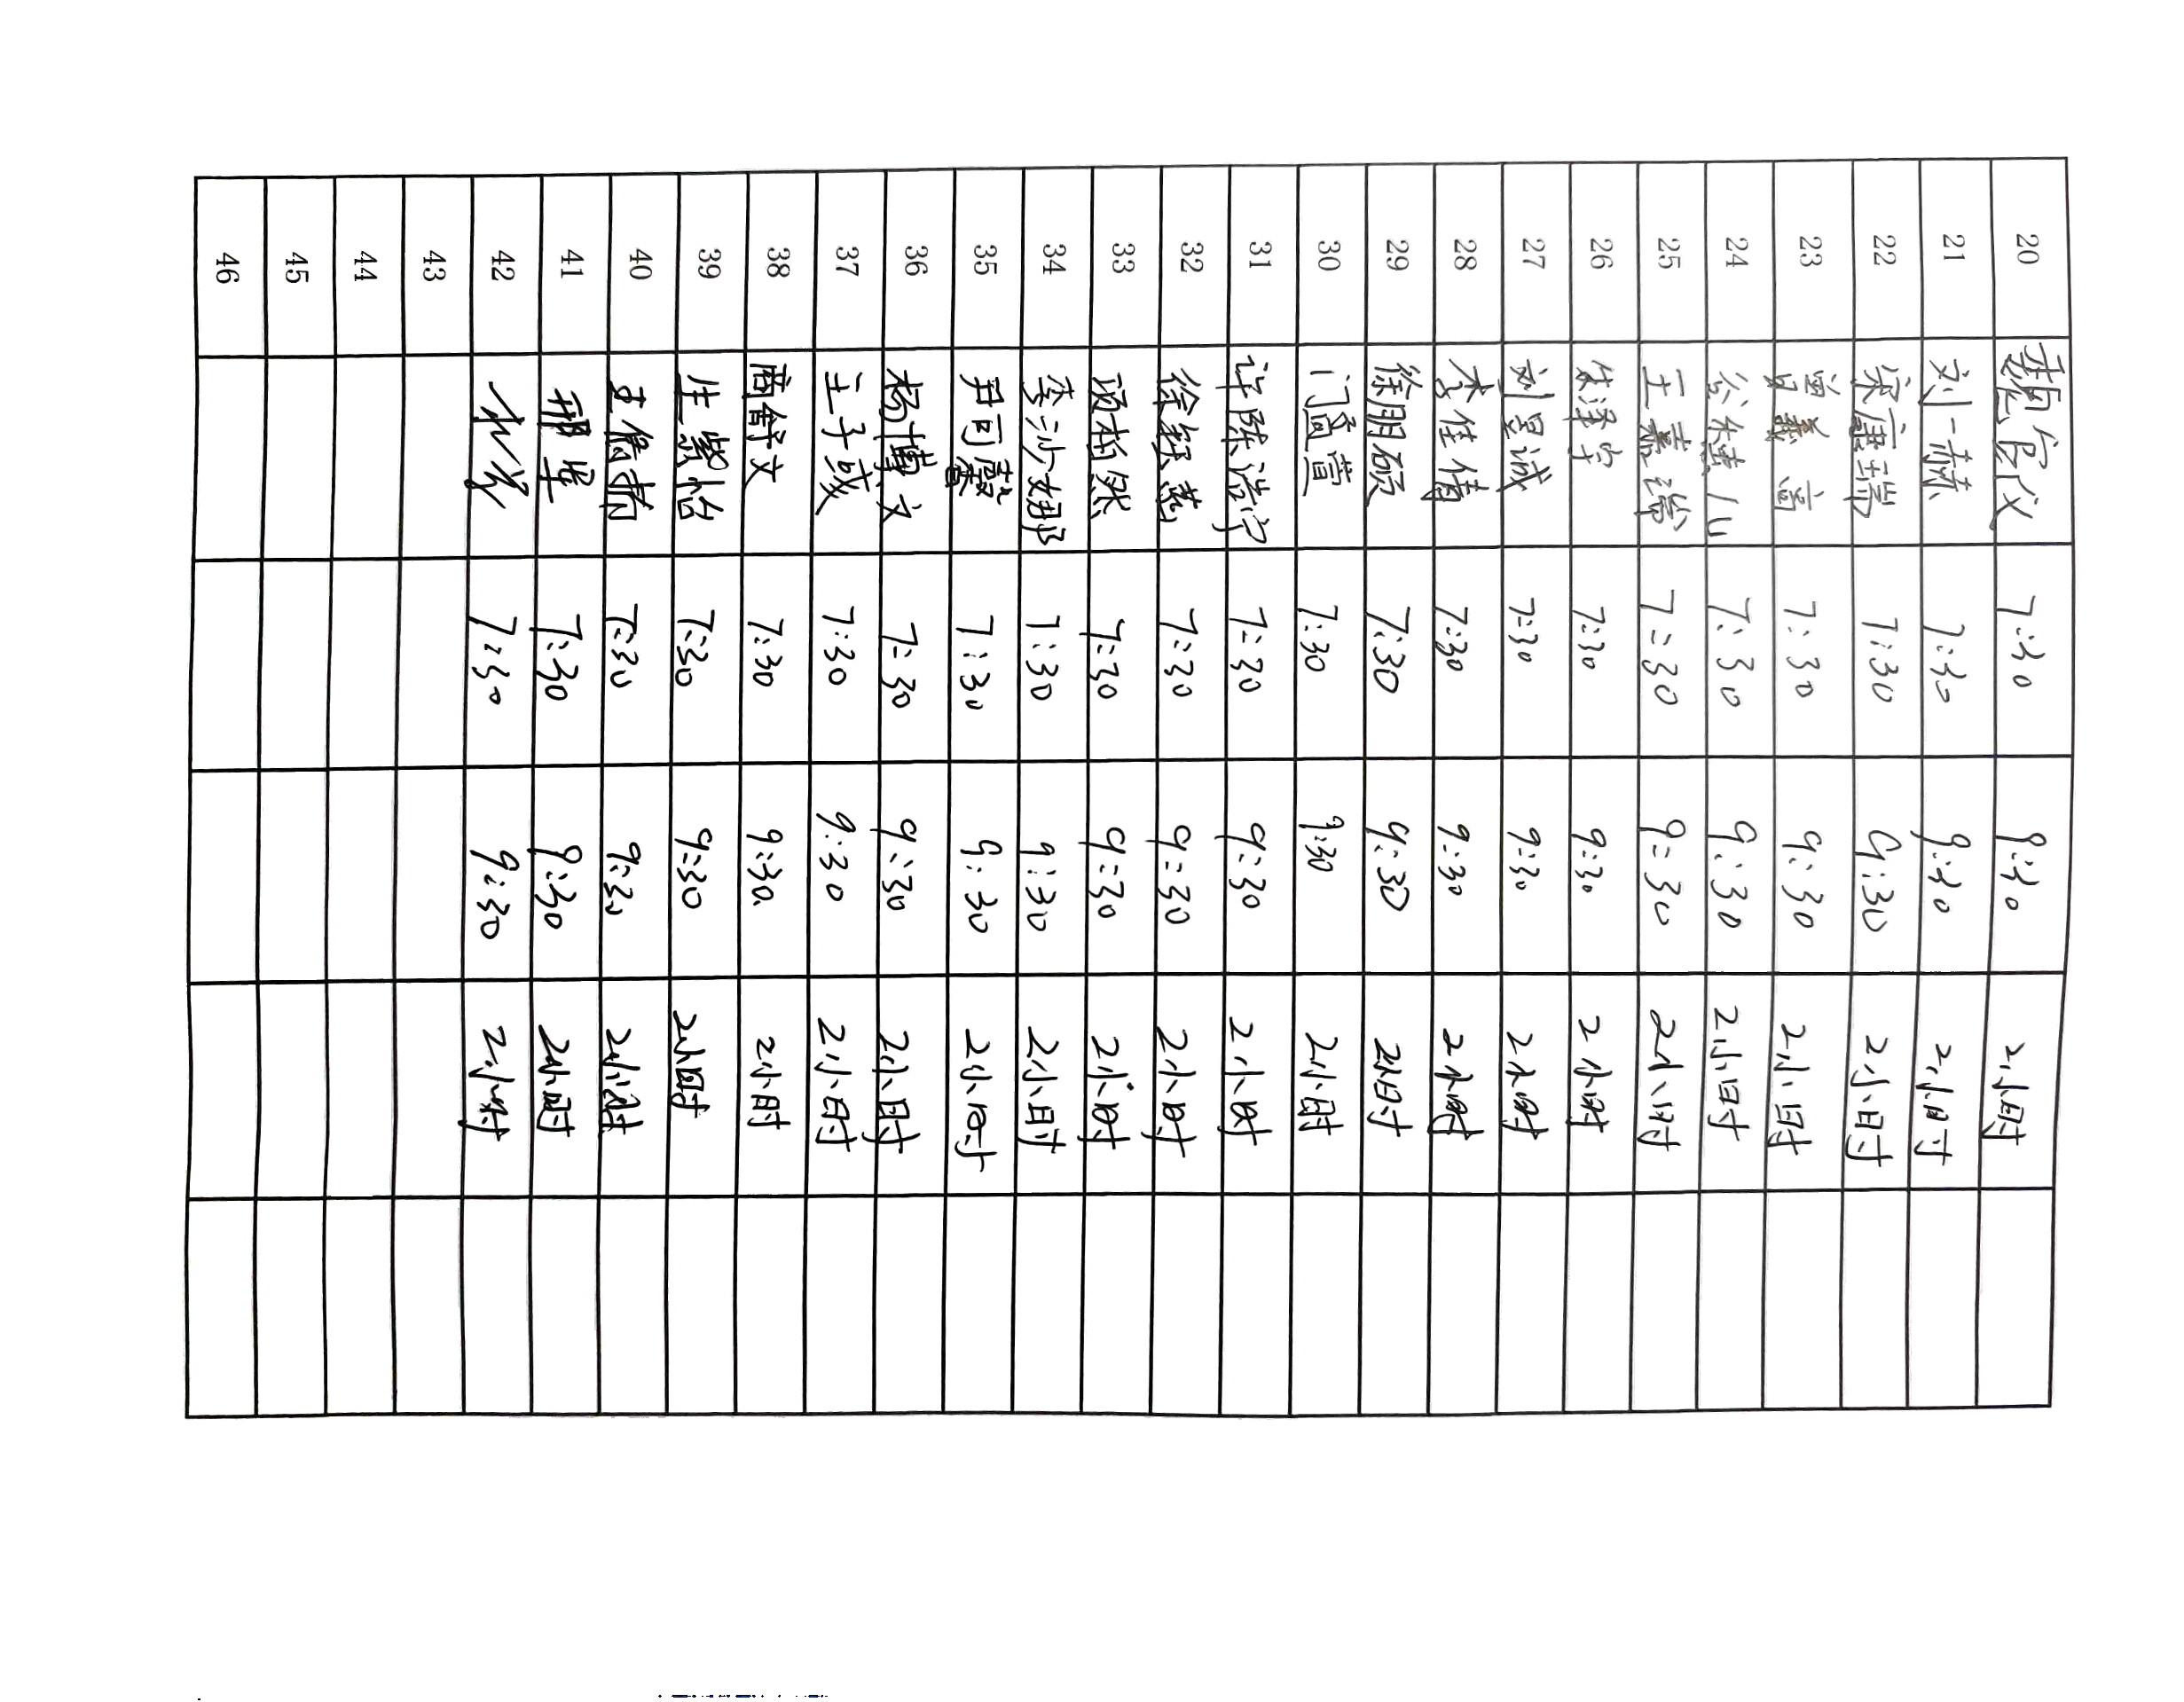 20 7:30 9:30 2小时
21 刘一赫 7:30 9:30 2小时
22 宋康瑞 7:30 9:30 2小时
23 7:30 9:30 2小时
24 7:30 9:30 2小时
25 王嘉瑞 7:30 9:30 2小时
26 7:30 9:30 2小时
27 刘昱诚 7:30 9:30 2小时
28 李佳倩 7:30 9:30 2小时
29 徐朋硕 7:30 9:30 2小时
30 门盈萱 7:30 9:30 2小时
31 许陈浩宇 7:30 9:30 2小时
32 7:30 9:30 2小时
33 7:30 9:30 2小时
34 李沙娜 7:30 9:30 2小时
35 尹可馨 7:30 9:30 2小时
36 杨博文 7:30 9:30 2小时
37 王子诚 7:30 9:30 2小时
38 商舒文 7:30 9:30 2小时
39 庄紫怡 7:30 9:30 2小时
40 7:30 9:30 2小时
41 7:30 9:30 2小时
42 7:30 9:30 2小时
43
44
45
46